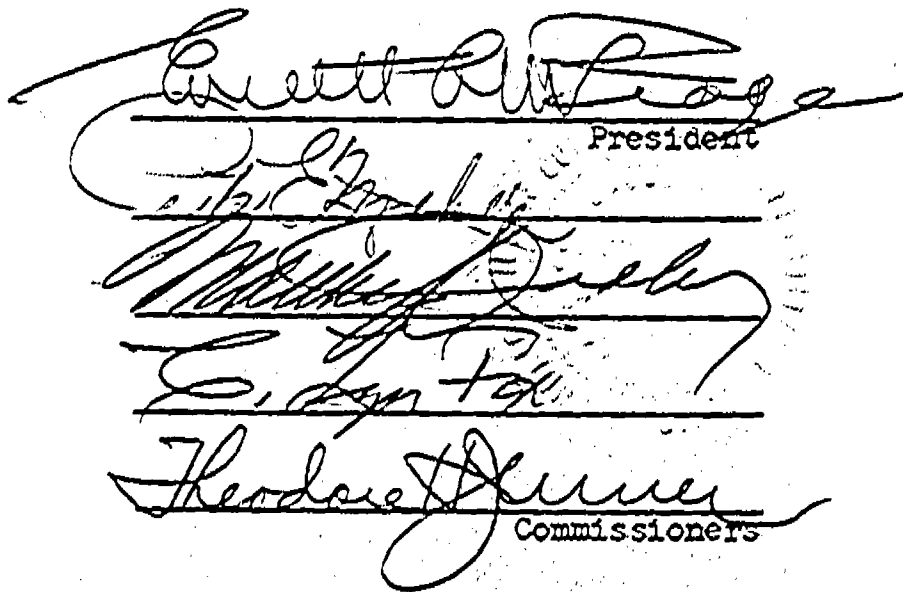 Everett C. McKeage
President
Matthew J. Dooley
C. Lyn Fox
Theodore H. Jenner
Commissioners